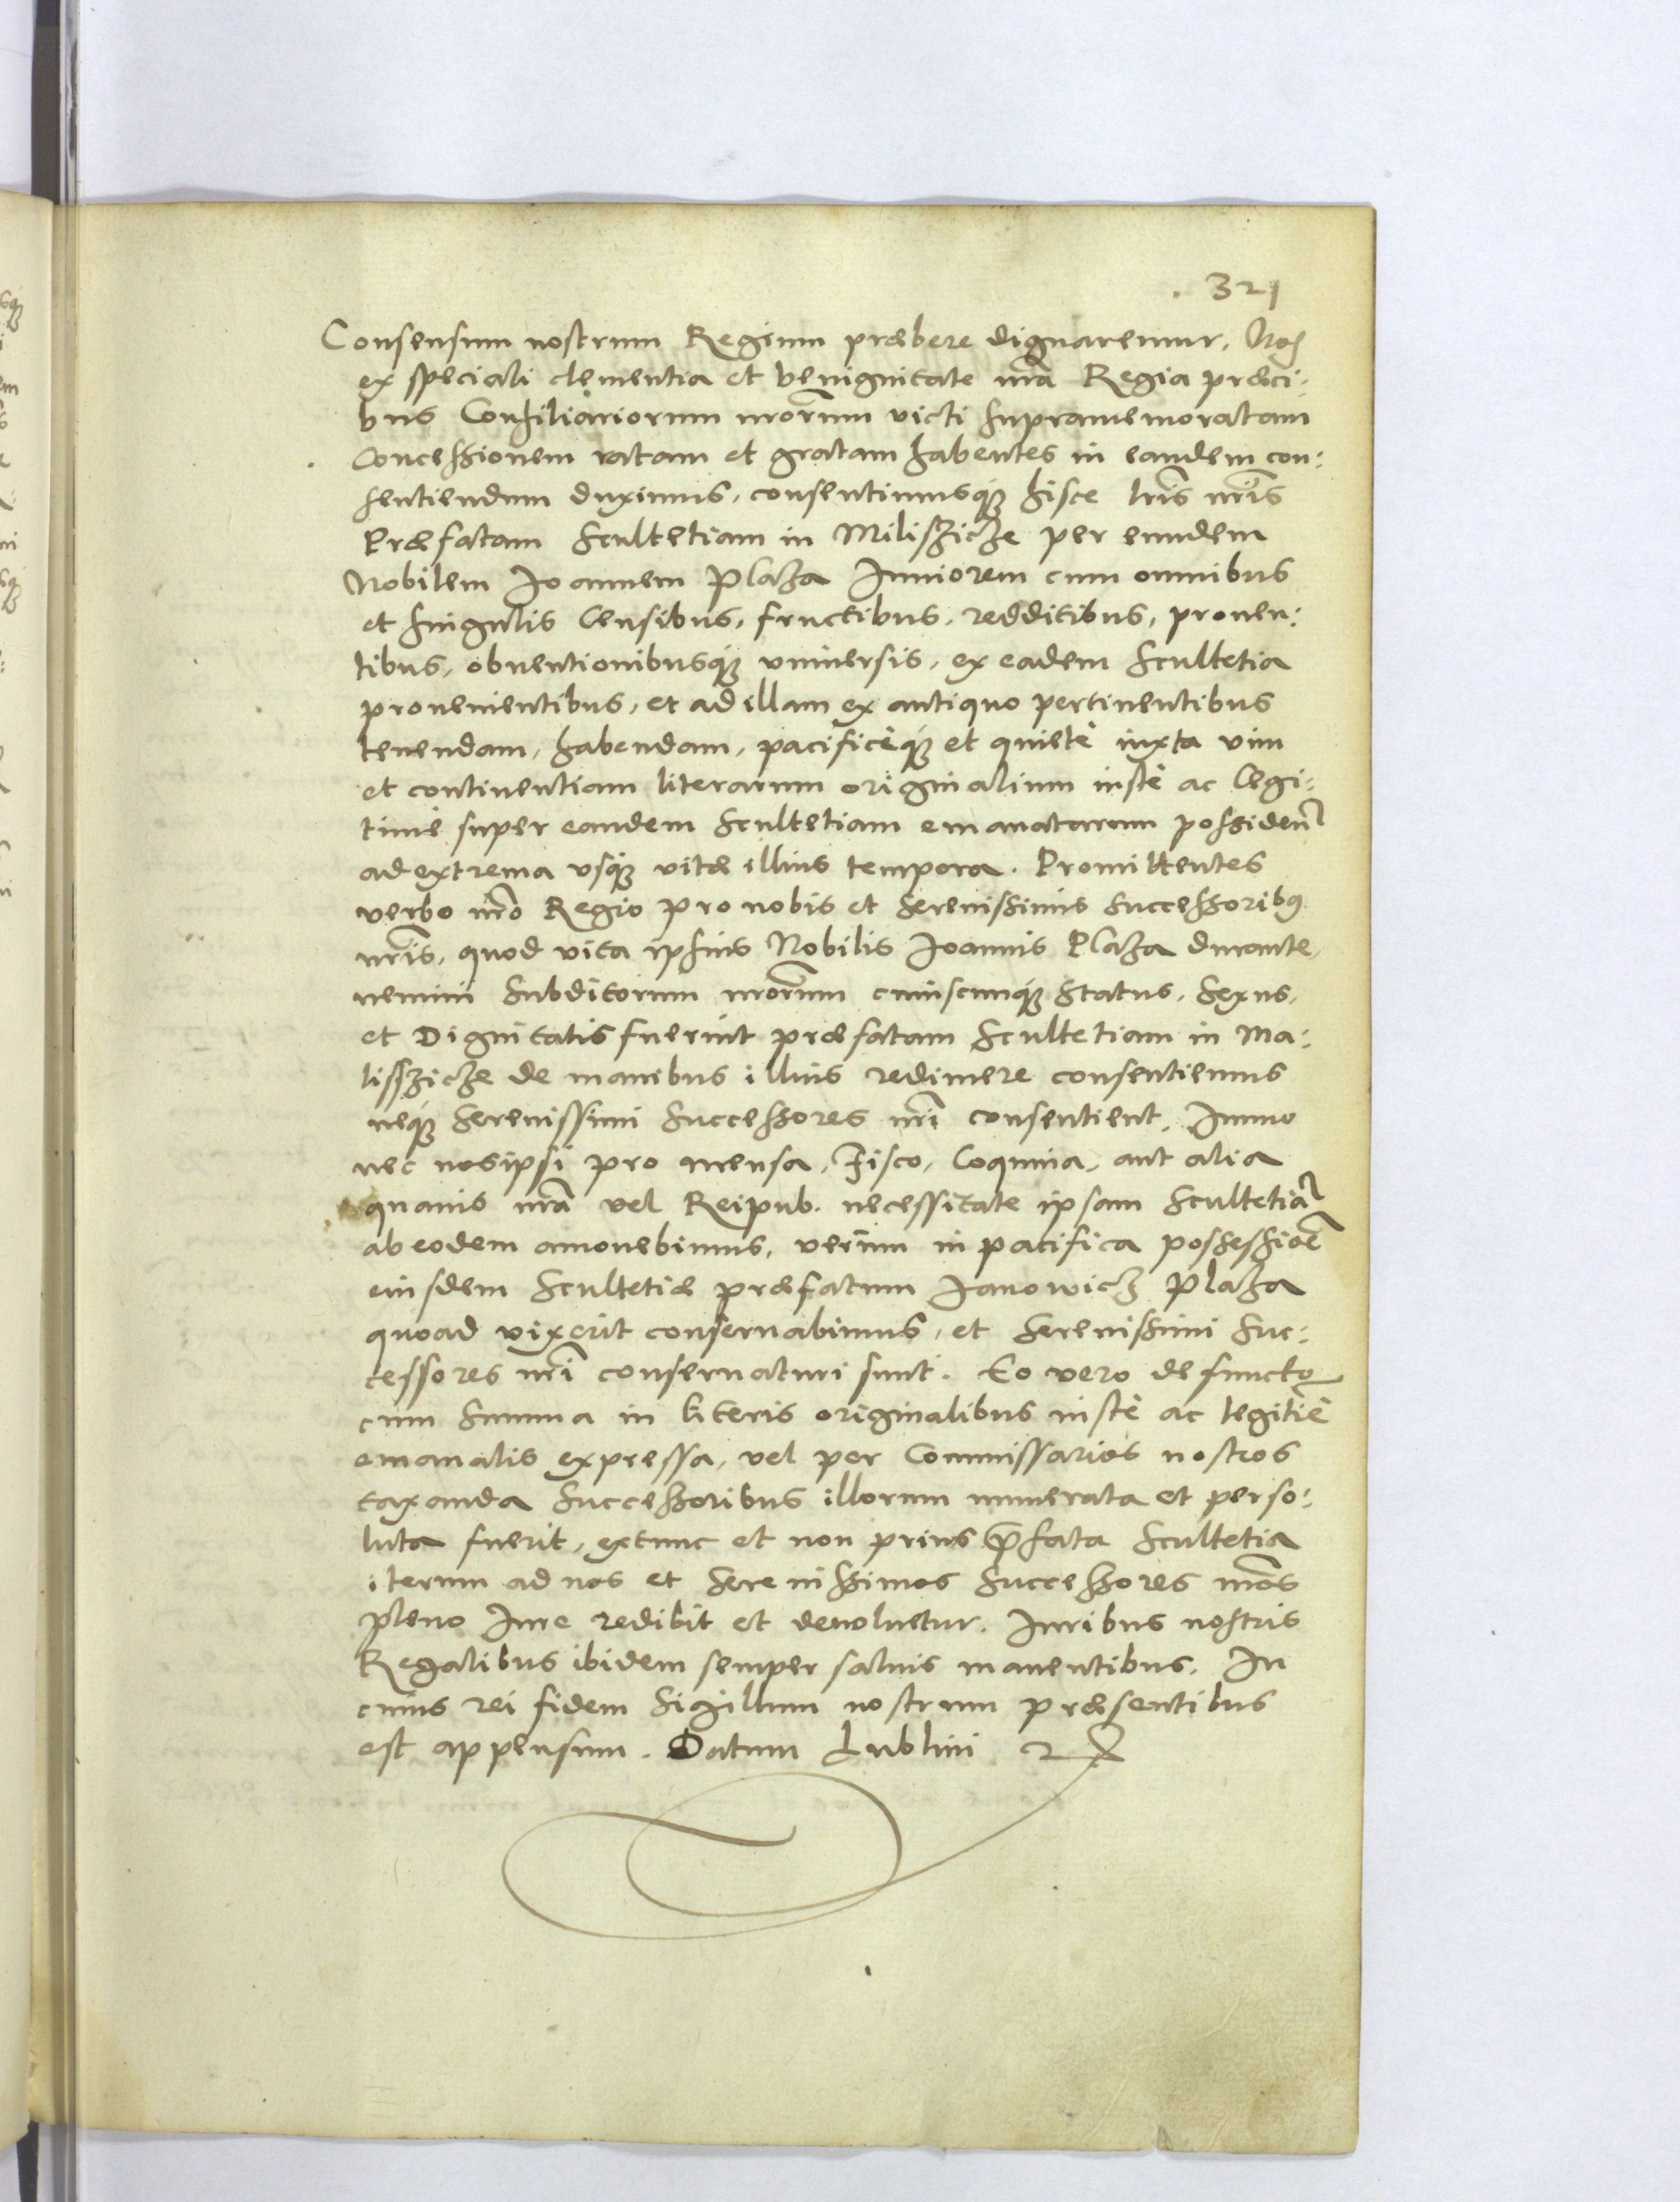 321
Consensum nostrum Regium præbere dignaremur, Nos
ex speciali clementia et benignitate nr̃a Regia præci:
bus Consiliariorum nr̃orum victi supramemoratam
Concessionem ratam et gratam habentes in eandem con:
sentiendum duximus, consentimusq́ue hisce lr̃is nr̃is
Præfatam Scultetiam in Miliszicze per eundem
Nobilem Joannem Plaza Juniorem cum omnibus
et singulis Censibus, fructibus, redditibus, proven:
tibus, obventionibusq́ue vniversis, ex eadem Scultetia
provenientibus, et ad illam ex antiquo pertinentibus
tenendam, habendam, pacificèq́ue et quietè iuxta vim
et continentiam literarum originalium iustè ac legi:
timè super eandem Scultetiam emanatarum possidend̃
ad extrema vsq́ue vitæ illius tempora. Promittentes
verbo nr̃o Regio pro nobis et Serenissimis Successoribꝰ
nr̃is, quod vita ipsius Nobilis Joannis Plaza durante,
nemini Subditorum nr̃orum cuiuscunq́ue Status, Sexus,
et Dignitatis fuerint præfatam Scultetiam in Ma:
lisszicze de manibus illius redimere consentiemus
neq́ue Serenissimi Successores nr̃i consentient, Immo
nec nosipsi pro mensa, Fisco, Coquina, aut alia
quavis nr̃a vel Reipub. necessitate ipsam Scultetiã
ab eodem amovebimus, verùm in pacifica possessioẽ
eiusdem Scultetiæ præfatum Janowicz Plaza
quoad vixerit conservabimus, et Serenissimi Suc:
cessores nr̃i conservaturi sunt. Eo vero defuncto
cum summa in literis originalibus iustè ac legitiè
emanatis expressa, vel per Commissarios nostros
taxanda Successoribus illorum numerata et perso:
luta fuerit, extunc et non prius p̃fata Scultetia
iterum ad nos et Serenissimos Successores nr̃os
pleno Iure redibit et devoluetur. Iuribus nostris
Regalibus ibidem semper salvis manentibus. In
cuius rei fidem Sigillum nostrum præsentibus
est appensum. Datum Lublini